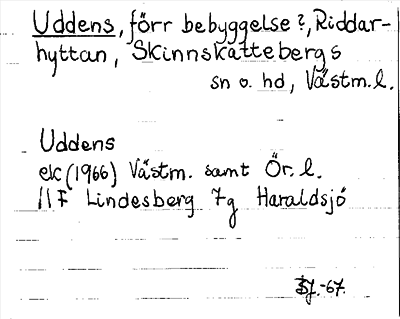 Uddens, förr bebyggelse?, Riddar-
hyttan, Skinnskattebergs
sn o. hd, Västm.l.
Uddens
ek (1966) Västm. samt Ör. l.
11F Lindesberg 7g Haraldsjö
-67.